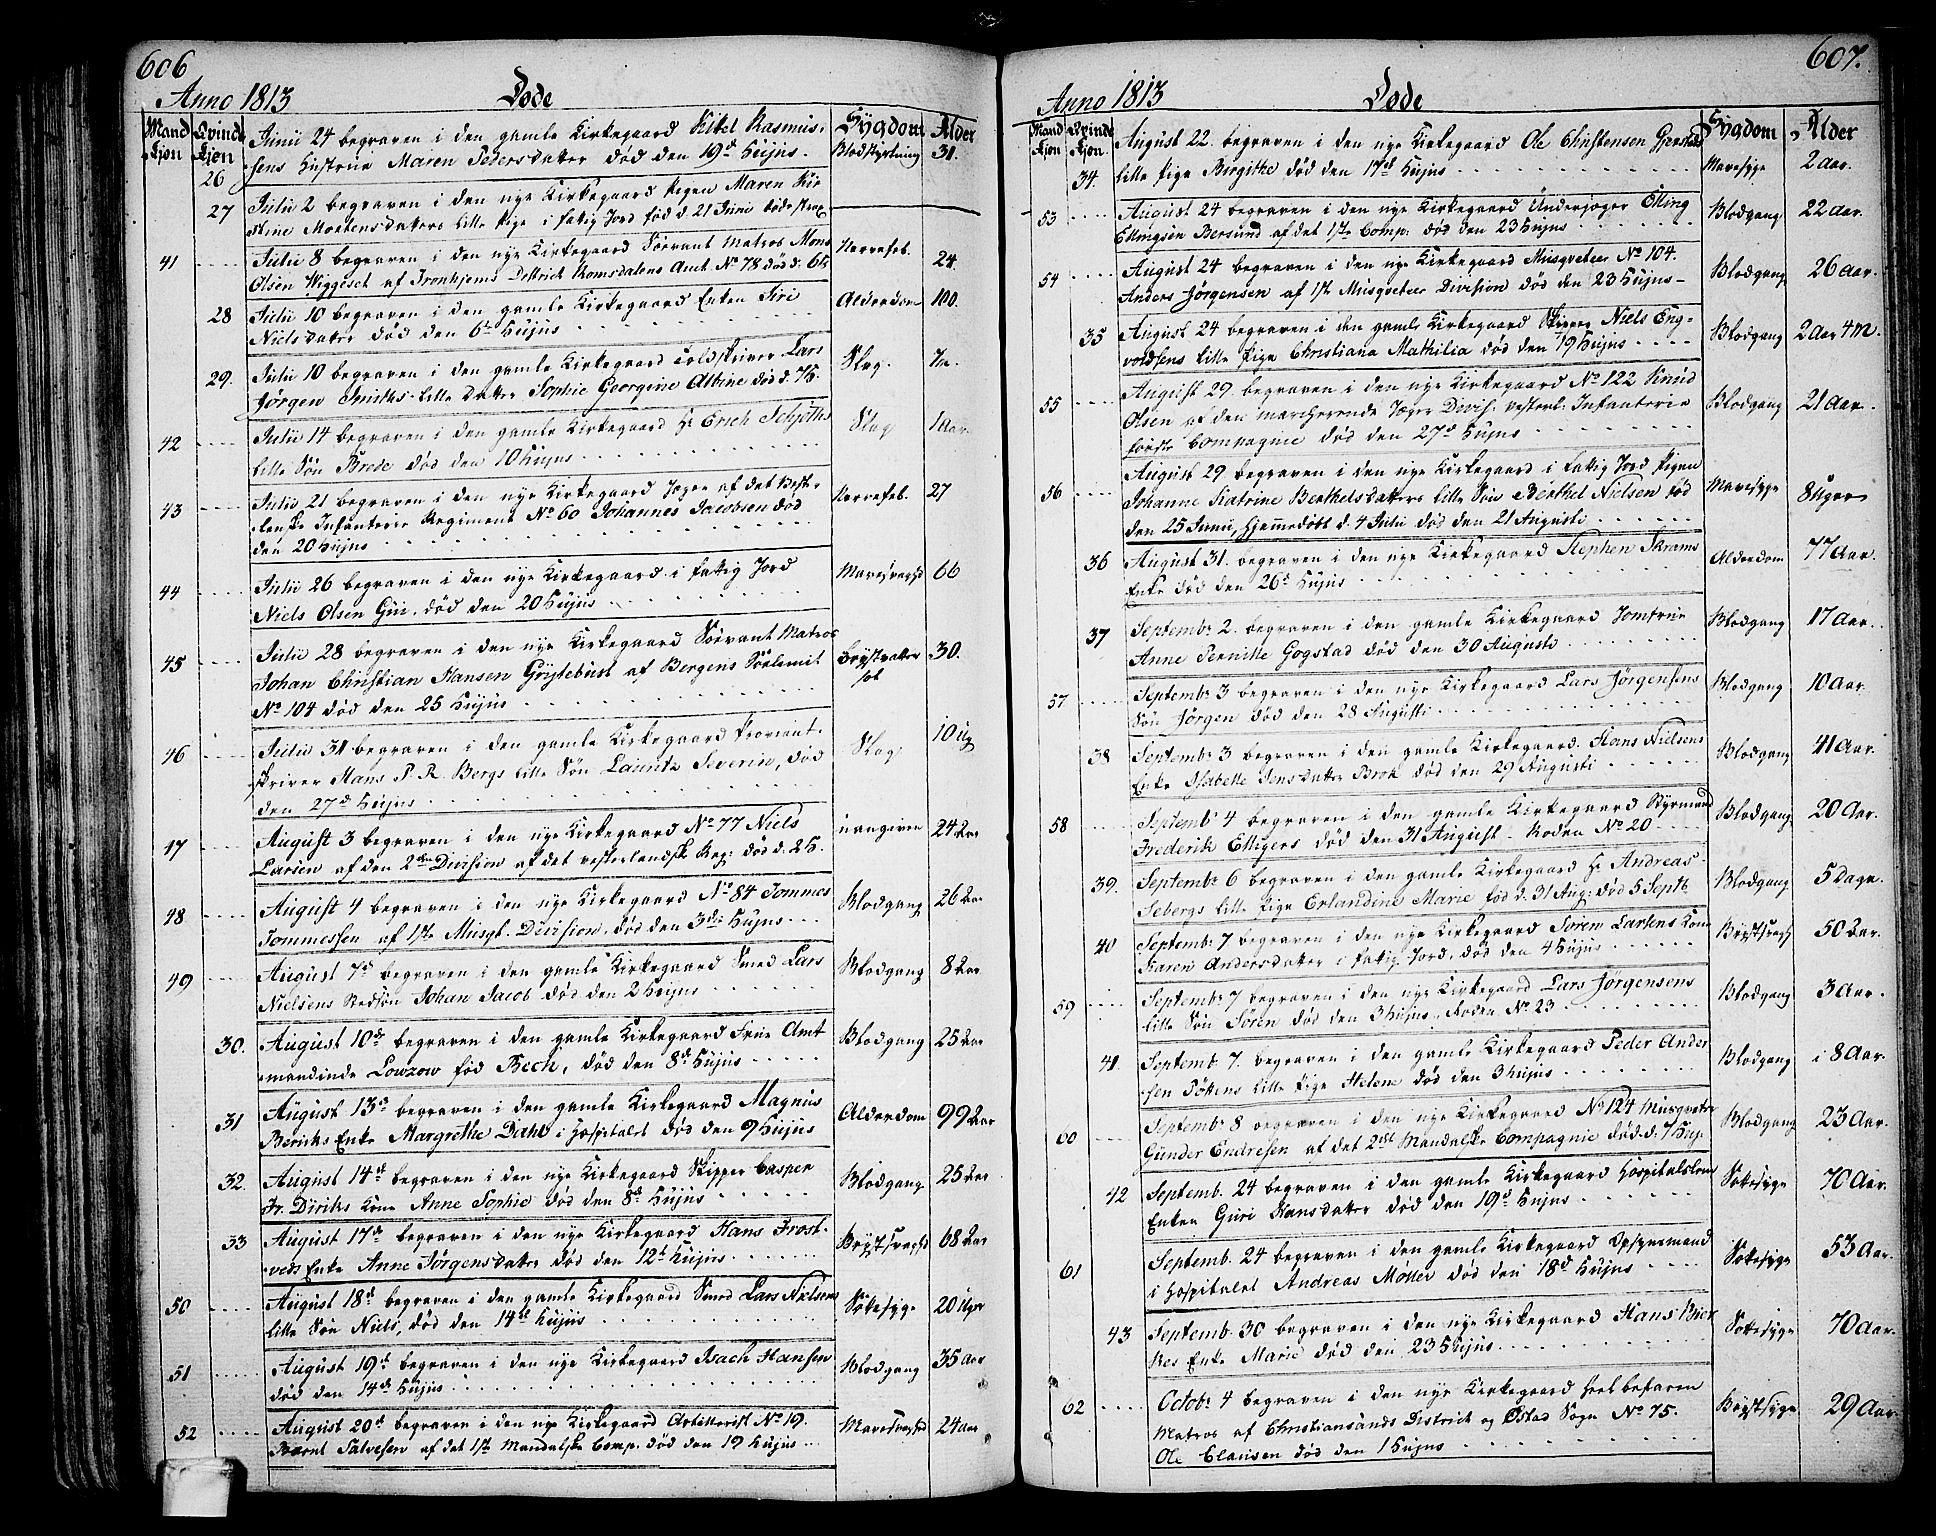 606
Anno 1813 Døde
Mandkjøn Qvindekjøn Sygdom Alder
26 Junii 24 begraven i den gamle Kirkegaard Kikel Rasmus- Blodstyrtning 31.
sens Hustrue Maren Pedersdatter død den 19d Hujus.
27 Julii 2 begraven i den nye Kirkegaard Pigen Maren Kir
stine Mortensdatters lille Pige i fattig Jord fød d. 21 Juni
41 Julii 8 begraven i den nye Kirkegaard Matros Mons Nervefeb. 24
Olsen Wiggeset af Tronhjems Destrict Romsdalens Amt No 78 død d. 6 H.
28 Julii 10 begraven i den gamle Kirkegaard Enken Siri Alderdom 100.
Nielsdatter død den 6te Hujus
29. Julii 10 begraven i den gamle Kirkegaard Toldskriver Lars Slag. 7
Jørgen Smiths lille Datter Sophie Georgine Albine død d. 7 H.
42 Julii 14 begraven i den gamle Kirkegaard Hr Erich Schjøths Slag 1 Aar
lille Søn Brede død den 10 Hujus
43 Julii 21 begraven i den nye Kirkegaard Jæger af det Vester- Nervefeb. 27
lenske Infanterie Regiment No 60 Johannes Jacobsen død
den 20 Hujus
44 Julii 26 begraven i den nye Kirkegaard i fattig Jord 66
Niels Olsen Gui. død den 20 Hujus
45 Julii 28 begraven i den nye Kirkegaard Matros Brystvatter 30.
sot
Johan Christian Hansen Gryttebust af Bergens
No 104 død den 25 Hujus
46 Julii 31 begraven i den gamle Kirkegaard Proviant- Slag 10 Ug
skriver Hans P. R. Bergs lille Søn Lauritz Severin, død
den 27d Hujus
47 August 3 begraven i den nye Kirkegaard No 77 Niels uangiven 24 Aar
Larsen af den 2den Division af det vesterlandske Reg: død d. 2 H.
48 August 4 begraven i den nye Kirkegaard No 84 Tommes Blodgang 26 Aar
Tommessen af 1ste Musqt. Division, død den 3di Hujus
49 August 7d begraven i den gamle Kirkegaard Smed Lars Blodgang 8 Aar
Nielsens Stedsøn Johan Jacob død den 2 Hujus
30. August 10de begraven i den gamle Kirkegaard Frue Amt Blodgang 25 Aar
mandinde Lowzow fød Bech, død den 8d Hujus
31 August 13d begraven i den gamle Kirkegaard Magnus Alderdom 99 Aar
Beriks Enke Margrethe Dahl i Hospitalet død den 9 Hujus
32. August 14d begraven i den nye Kirkegaard Skipper Casper Blodgang 25 Aar
Fr. Diriks Kone Anne Sophie død den 8d Hujus
33 August 17de begraven i den nye Kirkegaard Hans Frost- Brystsvaghd 68 Aar
veds Enke Anne Jørgensdatter død den 12t Hujus
50 August 18d begraven i den gamle Kirkegaard Smed Lars Nielsens Sottesyge 20 Uger
lille Søn Niels, død den 14de Hujus
51 August 19d begraven i den nye Kirkegaard Isach Hansen Blodgang 35 Aar
død den 14de Hujus
52 August 20d begraven i den nye Kirkegaard Artillerist No 19. Mavesvaghd 24 Aar
Bernt Salvesen af det 1ste Mandalske Comp. død den 19 Hujus
607.
Anno 1813 Døde
Mandkjøn Qvindekjøn Sygdom Alder
34. August 22. begraven i den nye Kirkegaard Ole Christensen Gjerstads Mavesyge 2 Aar.
lille Pige Birgithe død den 17d Hujus
53 August 24 begraven i den nye Kirkegaard Underjæger Elling Blodgang 22 Aar.
Ellingsen Bersund af det 1ste Comp: død den 23 Hujus
54 August 24 begraven i den nye Kirkegaard Musqveteer No 104. Blodgang 26 Aar.
Anders Jørgensen af 1ste Musqveteer Division død den 23 Hujus
35 August 24 begraven i den gamle Kirkegaard Skipper Niels Eng- Blodgang 2 Aar 4 M.
voldsens lille Pige Christiana Mathilia død den 19 Hujus
55 August 29 begraven i den nye Kirkegaard No 122 Knud Blodgang 21 Aar.
Olsen af den marcherende Jæger Divis. vesterl. Infanterie
første Compagnie død den 27d Hujus
56 August 29 begraven i den nye Kirkegaard i fattig Jord Pigen Mavesyge 8 Uger
Johanne Katrine Berthelsdatters lille Søn Berthel Nielsen fød
den 25 Junii, hjemmedøbt d. 4 Julii død den 21 Augusti
36 August 31. begraven i den nye Kirkegaard Stephen Skrams Alderdom 77 Aar.
Enke død den 26d Hujus
37 Septemb: 2. begraven i den gamle Kirkegaard Jomfrue Blodgang 17 Aar.
Anne Pernille Gogstad død den 30 Augusti
57 Septemb: 3 begraven i den nye Kirkegaard Lars Jørgensens Blodgang 10 Aar.
Søn Jørgen død den 28 Augusti
38 Septemb: 3 begraven i den gamle Kirkegaard. Hans Nielsens Blodgang 41 Aar.
Enke Isabelle Jensdatter Brok død den 29 Augusti
58 Septemb 4 begraven i den gamle Kirkegaard Styrmand Blodgang 20 Aar.
Frederik Elligers død den 31 August - Roden No 20
39. Septemb: 6 begraven i den gamle Kirkegaard Hr Andreas Blodgang 5 Dage.
Sebergs lille Pige Erlandine Marie fød d. 31 Aug: død 5 Septb.
40 Septemb: 7 begraven i den nye Kirkegaard Søren Larsens Kone Brystsvagh 50 Aar.
Karen Andersdatter i fattig Jord, død den 4 Hujus
59 Septemb: 7 begraven i den nye Kirkegaard Lars Jørgensens Blodgang 3 Aar.
lille Søn Søren død den 3 Hujus. Roden No 23
41. Septemb. 7. begraven i den gamle Kirkegaard Peder Ander Blodgang 8 Aar.
sen Tøkens lille Pige Helene død den 3 Hujus
60 Septemb: 8 begraven i den nye Kirkegaard No 124 Musqveter Blodgang 23 Aar.
Gunder Endresen af det 2det Mandalske Compagnie død d. 7 Huj.
42 Septemb. 24 begraven i den gamle Kirkegaard Hospitalslem Sottesyge 70 Aar.
Enken Guri Hansdatter død den 19d Hujus
61 Septemb. 24 begraven i den gamle Kirkegaard Opsynsmand Sottesyge 53 Aar.
i Hospitalet Andreas Møller død den 18d Hujus
43 Septemb. 30 begraven i den nye Kirkegaard Hans Bier Sottesyge 70 Aar.
kes Enke Marie død den 23 Hujus
62 Octob: 4 begraven i den nye Kirkegaard heel befaren Brystsyge 29 Aar.
Matros af Christiansands District og Østad Sogn No 75.
Ole Clausen død den 1 Hujus